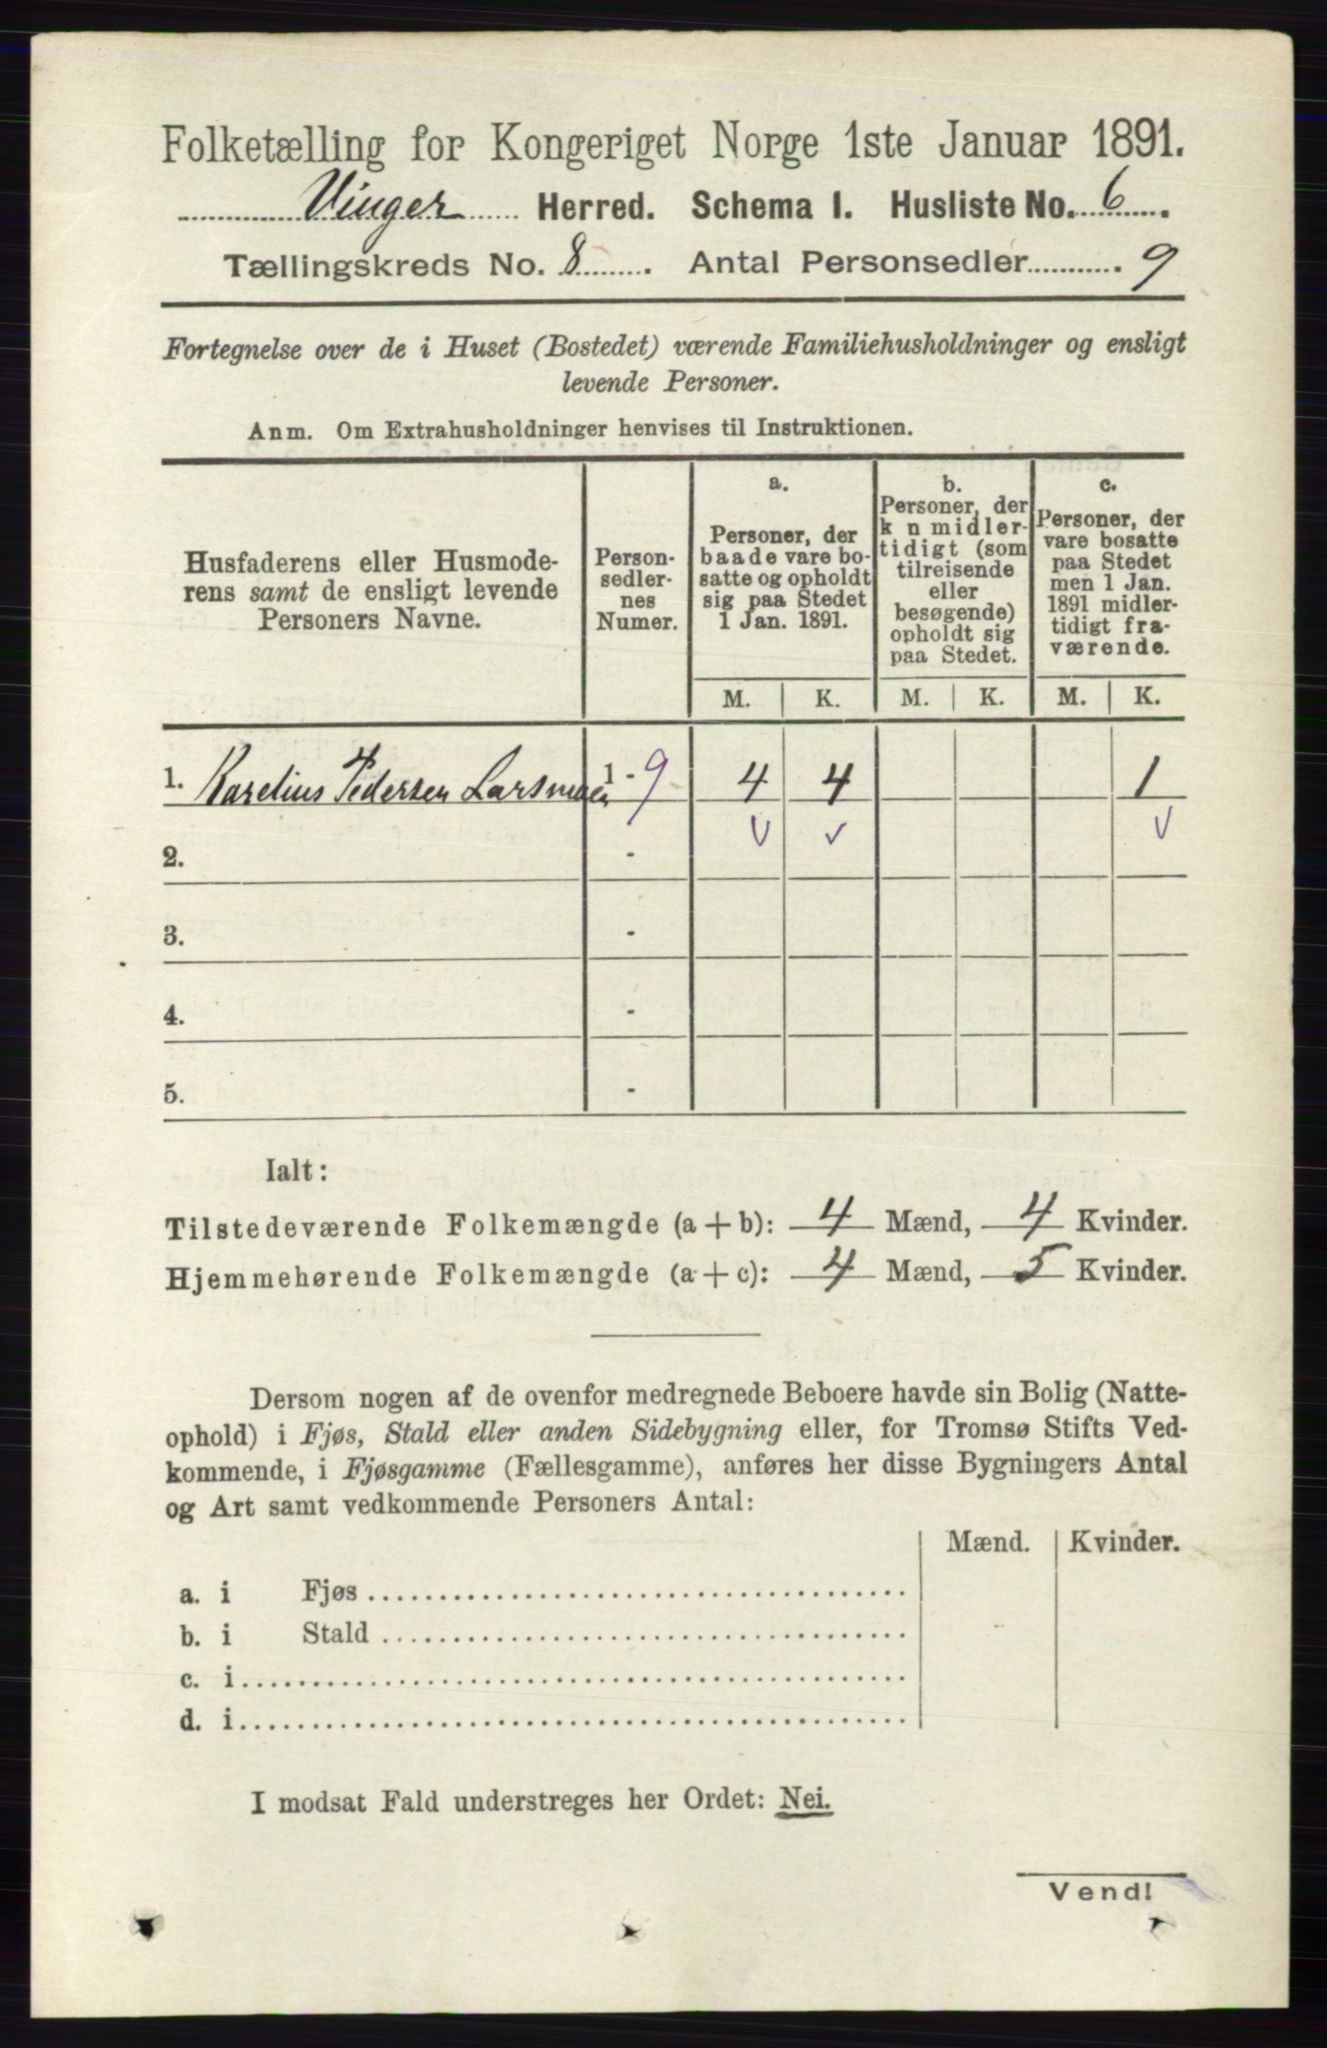 Folketælling for Kongeriget Norge 1ste Januar 1891.
Vinger Herred. Schema I. Husliste No. 6.
Tællingskreds No. 8. Antal Personsedler 9
Fortegnelse over de i Huset (Bostedet) værende Familiehusholdninger og ensligt
levende Personer.
Anm. Om Extrahusholdninger henvises til Instruktionen.
Husfaderens eller Husmode-
rens samt de ensligt levende
Personers Navne.
Person-
sedler-
nes
Numer.
a.
Personer, der
baade vare bo-
satte og opholdt
sig paa Stedet
1 Jan. 1891.
b.
Personer, der
k n midler-
tidigt (som
tilreisende
eller
besøgende)
opholdt sig
paa Stedet.
c.
Personer, der
vare bosatte
paa Stedet
men 1 Jan.
1891 midler-
tidigt fra-
værende.
M. K. M. K. M. K.
1. Karelius Pedersen Larsmoen 1 - 9 4 4 1
2. -
3. -
4. -
5. -
Ialt:
Tilstedeværende Folkemængde (a + b): 4 Mænd, 4 Kvinder.
Hjemmehørende Folkemængde (a + c): 4 Mænd, 5 Kvinder.
Dersom nogen af de ovenfor medregnede Beboere havde sin Bolig (Natte-
ophold) i Fjøs, Stald eller anden Sidebygning eller, for Tromsø Stifts Ved-
kommende, i Fjøsgamme (Fællesgamme), anføres her disse Bygningers Antal
og Art samt vedkommende Personers Antal:
Mænd. Kvinder.
a. i Fjøs
b. i Stald
c. i
d. i
I modsat Fald understreges her Ordet: Nei.
Vend!